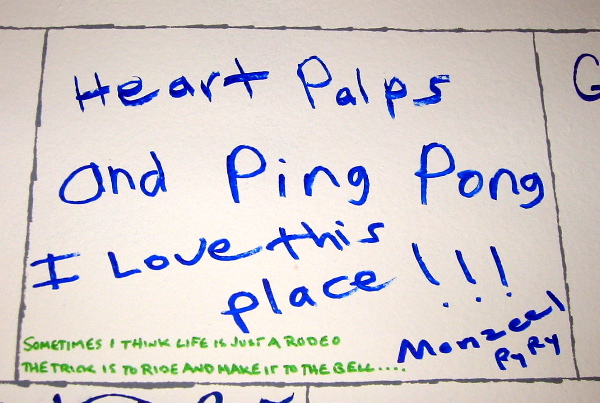 Heart Palps
and Ping Pong
I Love this
place!!!
Monzeel
PyRy
SOMETIMES I THINK LIFE IS JUST A RODEO
THE TRICK IS TO RIDE AND MAKE IT TO THE BELL....
G